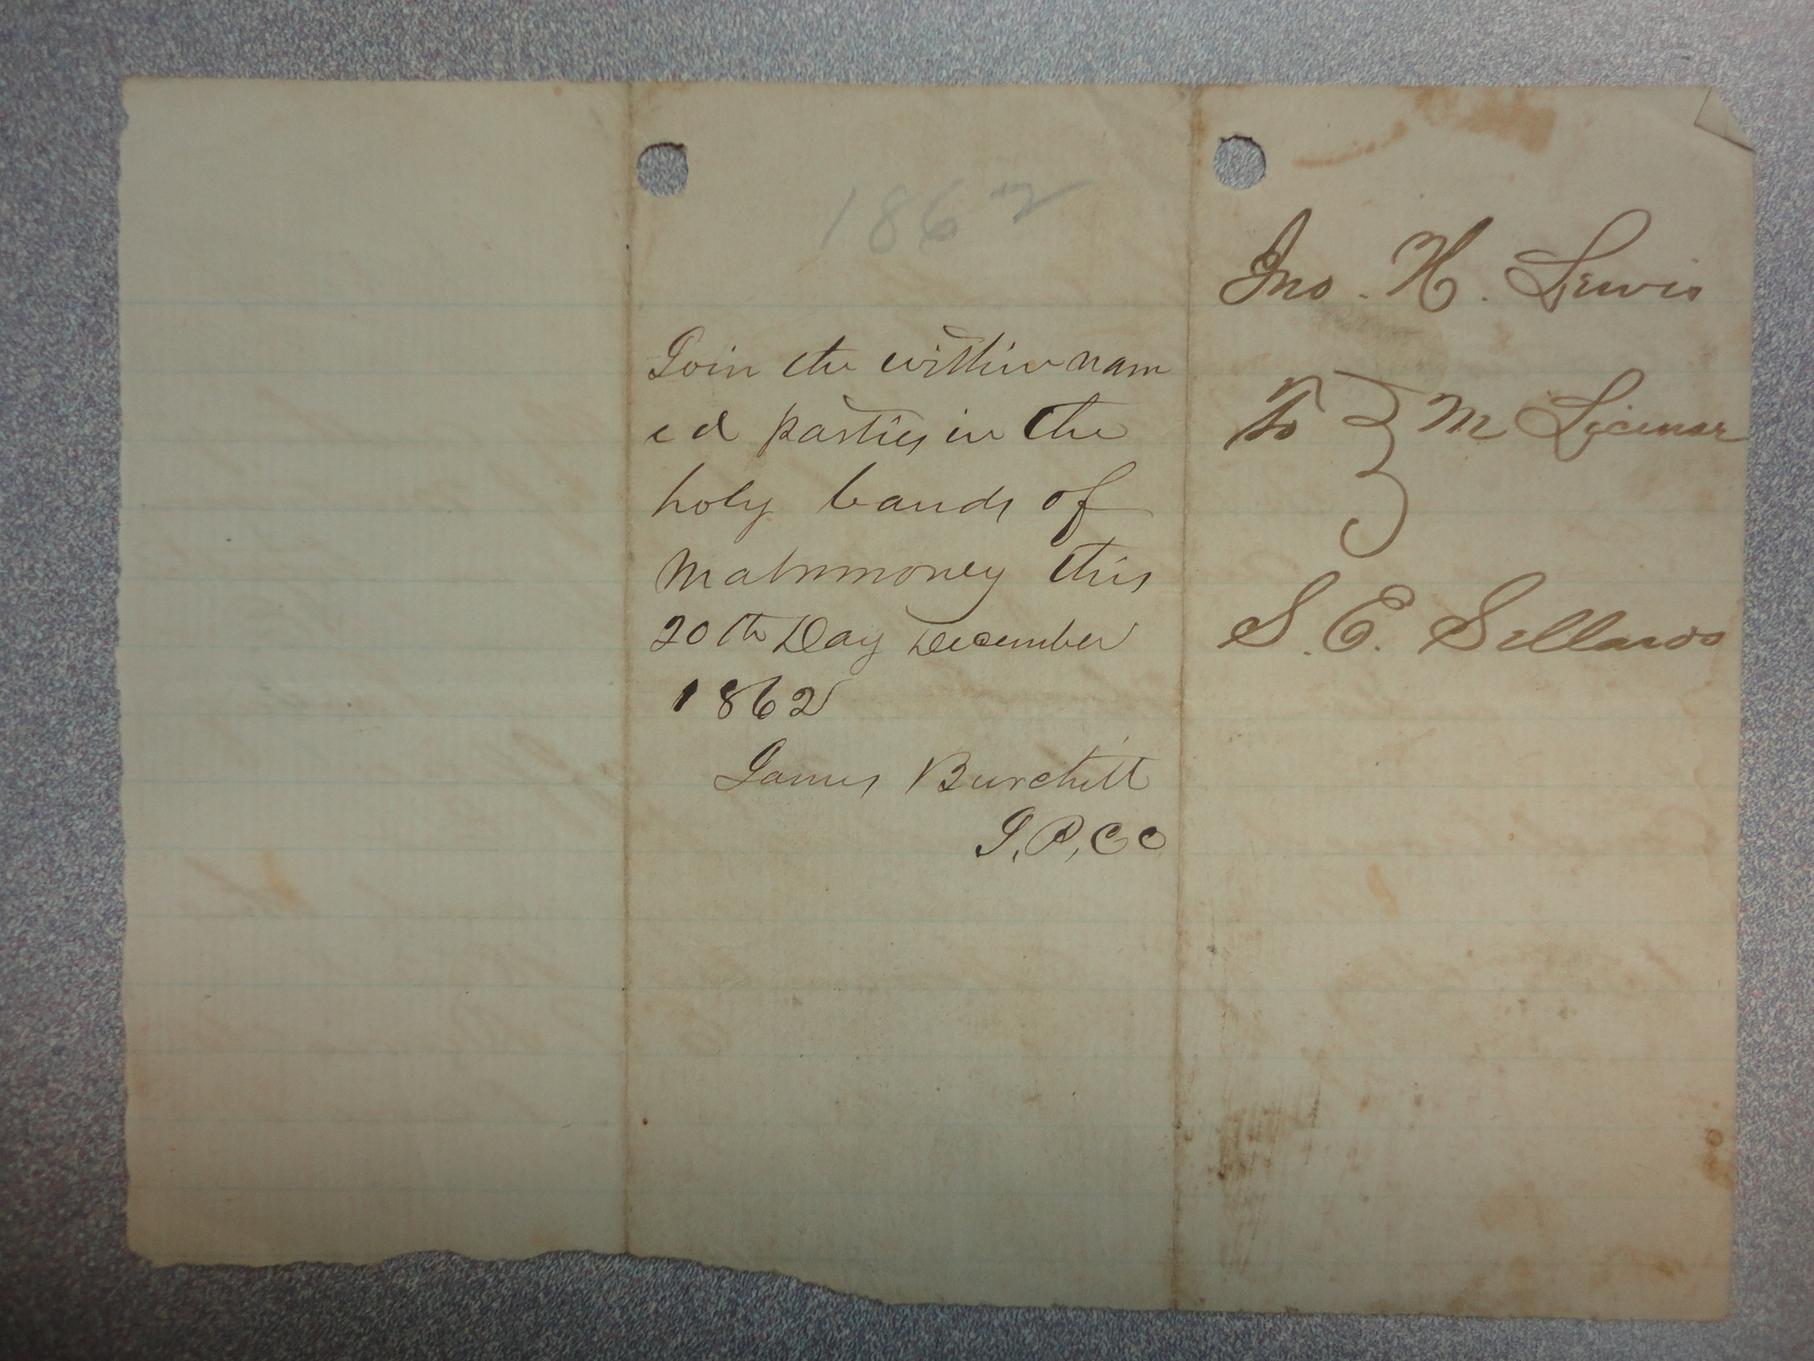 1862
Join the within nam
ed parties in the
holy bands of
Matrimoney this
20th Day December
1862
James Burchill
J.P.CC
Jno. H. Lewis
To } M License
S. E. Sellards